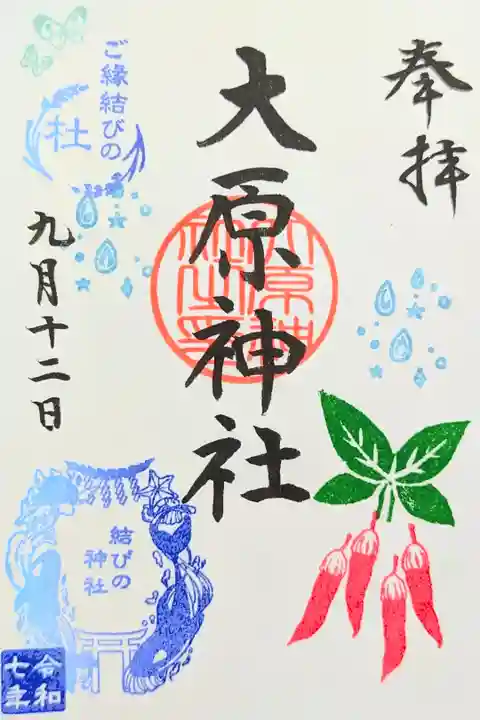 奉拝
大原神社
大原神社之印
ご縁結びの
杜
九月十二日
結びの
神社
令和
七年